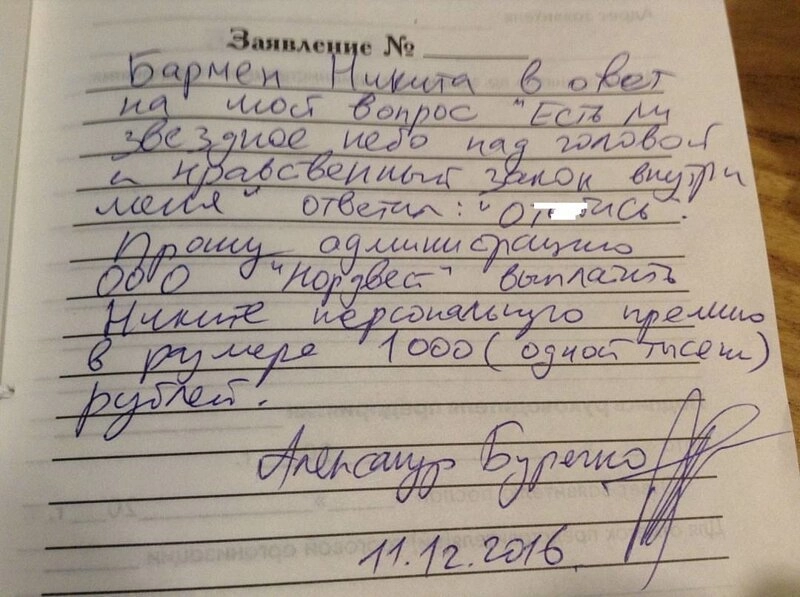 Заявление №
Бармен Никита в овет
на мой вопрос "Есть ли
звездное небо над головой
и нравственный закон внутри
меня" ответил: "От ись".
Прошу администрацию
ООО "Нордвест" выплатить
Никите персональную премию
в размере 1000 (одной тысечи)
рублей.
Александр Буречко
11.12.2016